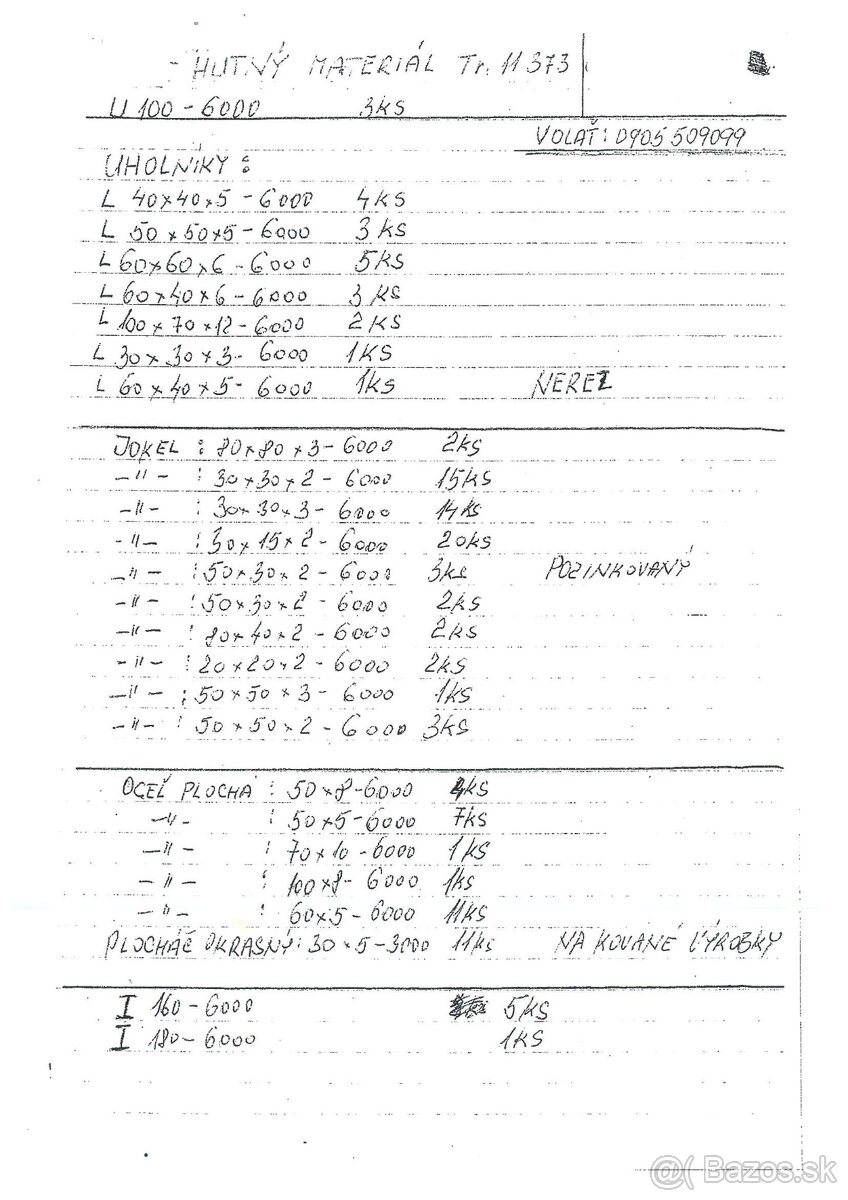 - HUTNÝ MATERIÁL Tr. 11 373
U 100 - 6000 3KS
VOLAŤ: 0905 509099
UHOLNÍKY :
L 40x40x5 - 6000 4KS
L 50x50x5 - 6000 3KS
L 60x60x6 - 6000 5KS
L 60x40x6 - 6000 3KS
L 100x70x12 - 6000 2KS
L 30x30x3 - 6000 1KS
L 60x40x5 - 6000 1KS NEREZ
JOKEL : 80x80x3 - 6000 2KS
-"- : 30x30x2 - 6000 15KS
-"- : 30x30x3 - 6000 14KS
-"- : 30x15x2 - 6000 20KS
-"- : 50x30x2 - 6000 3KS POZINKOVANÝ
-"- : 50x30x2 - 6000 2KS
-"- : 80x40x2 - 6000 2KS
-"- : 20x20x2 - 6000 2KS
-"- : 50x50x3 - 6000 1KS
-"- : 50x50x2 - 6000 3KS
OCEĽ PLOCHÁ : 50x8 - 6000 4KS
-"- : 50x5 - 6000 7KS
-"- : 70x10 - 6000 1KS
-"- : 100x8 - 6000 1KS
-"- : 60x5 - 6000 11KS
PLOCHÁČ OKRASNÝ : 30x5 - 3000 11KS NA KOVANÉ VÝROBKY
I 160 - 6000 5KS
I 180 - 6000 1KS
@( Bazos.sk